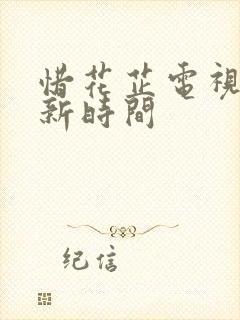 惜花芷電視
新時間
纪信